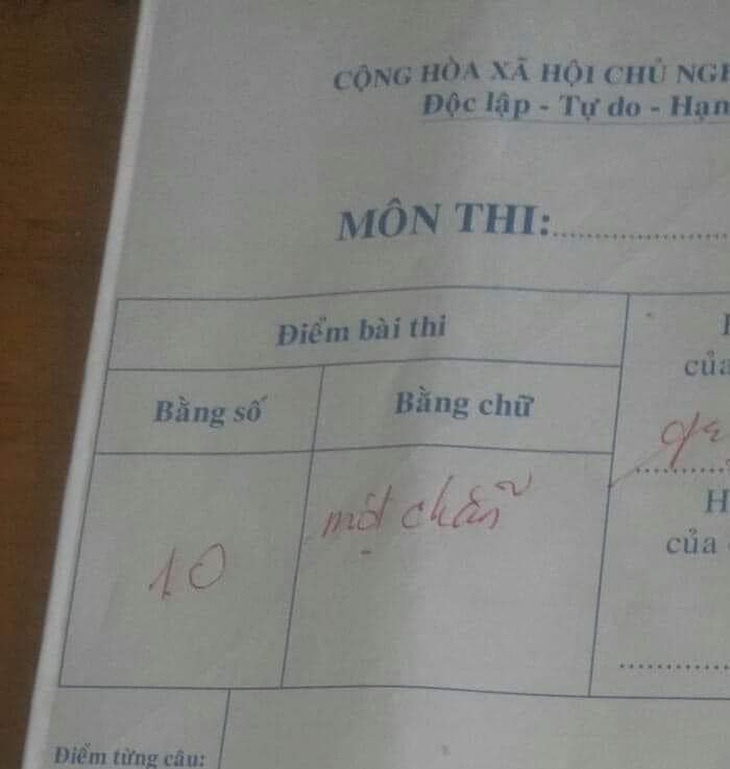 CỘNG HÒA XÃ HỘI CHỦ
Độc lập - Tự do -
MÔN THI:
Điểm bài thi
Bằng số
Bằng chữ
của
1.0
một chẵn
H
của
Điểm từng câu: